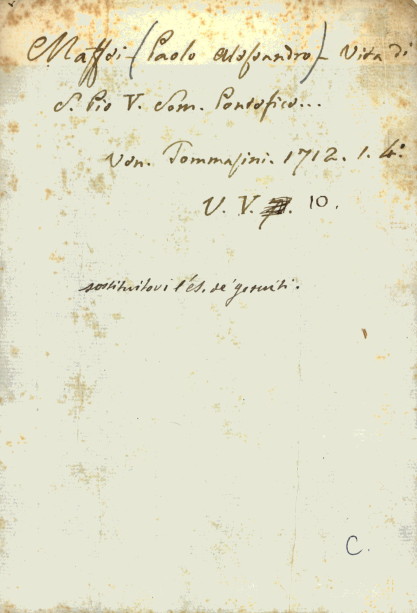 Maffei (Paolo Alessandro) Vita di
S. Pio V. Som. Pontefice...
Ven. Tommasini. 1712. 1. 4:
V. V. 10.
sostituitovi l'es. de' gesuiti.
C.